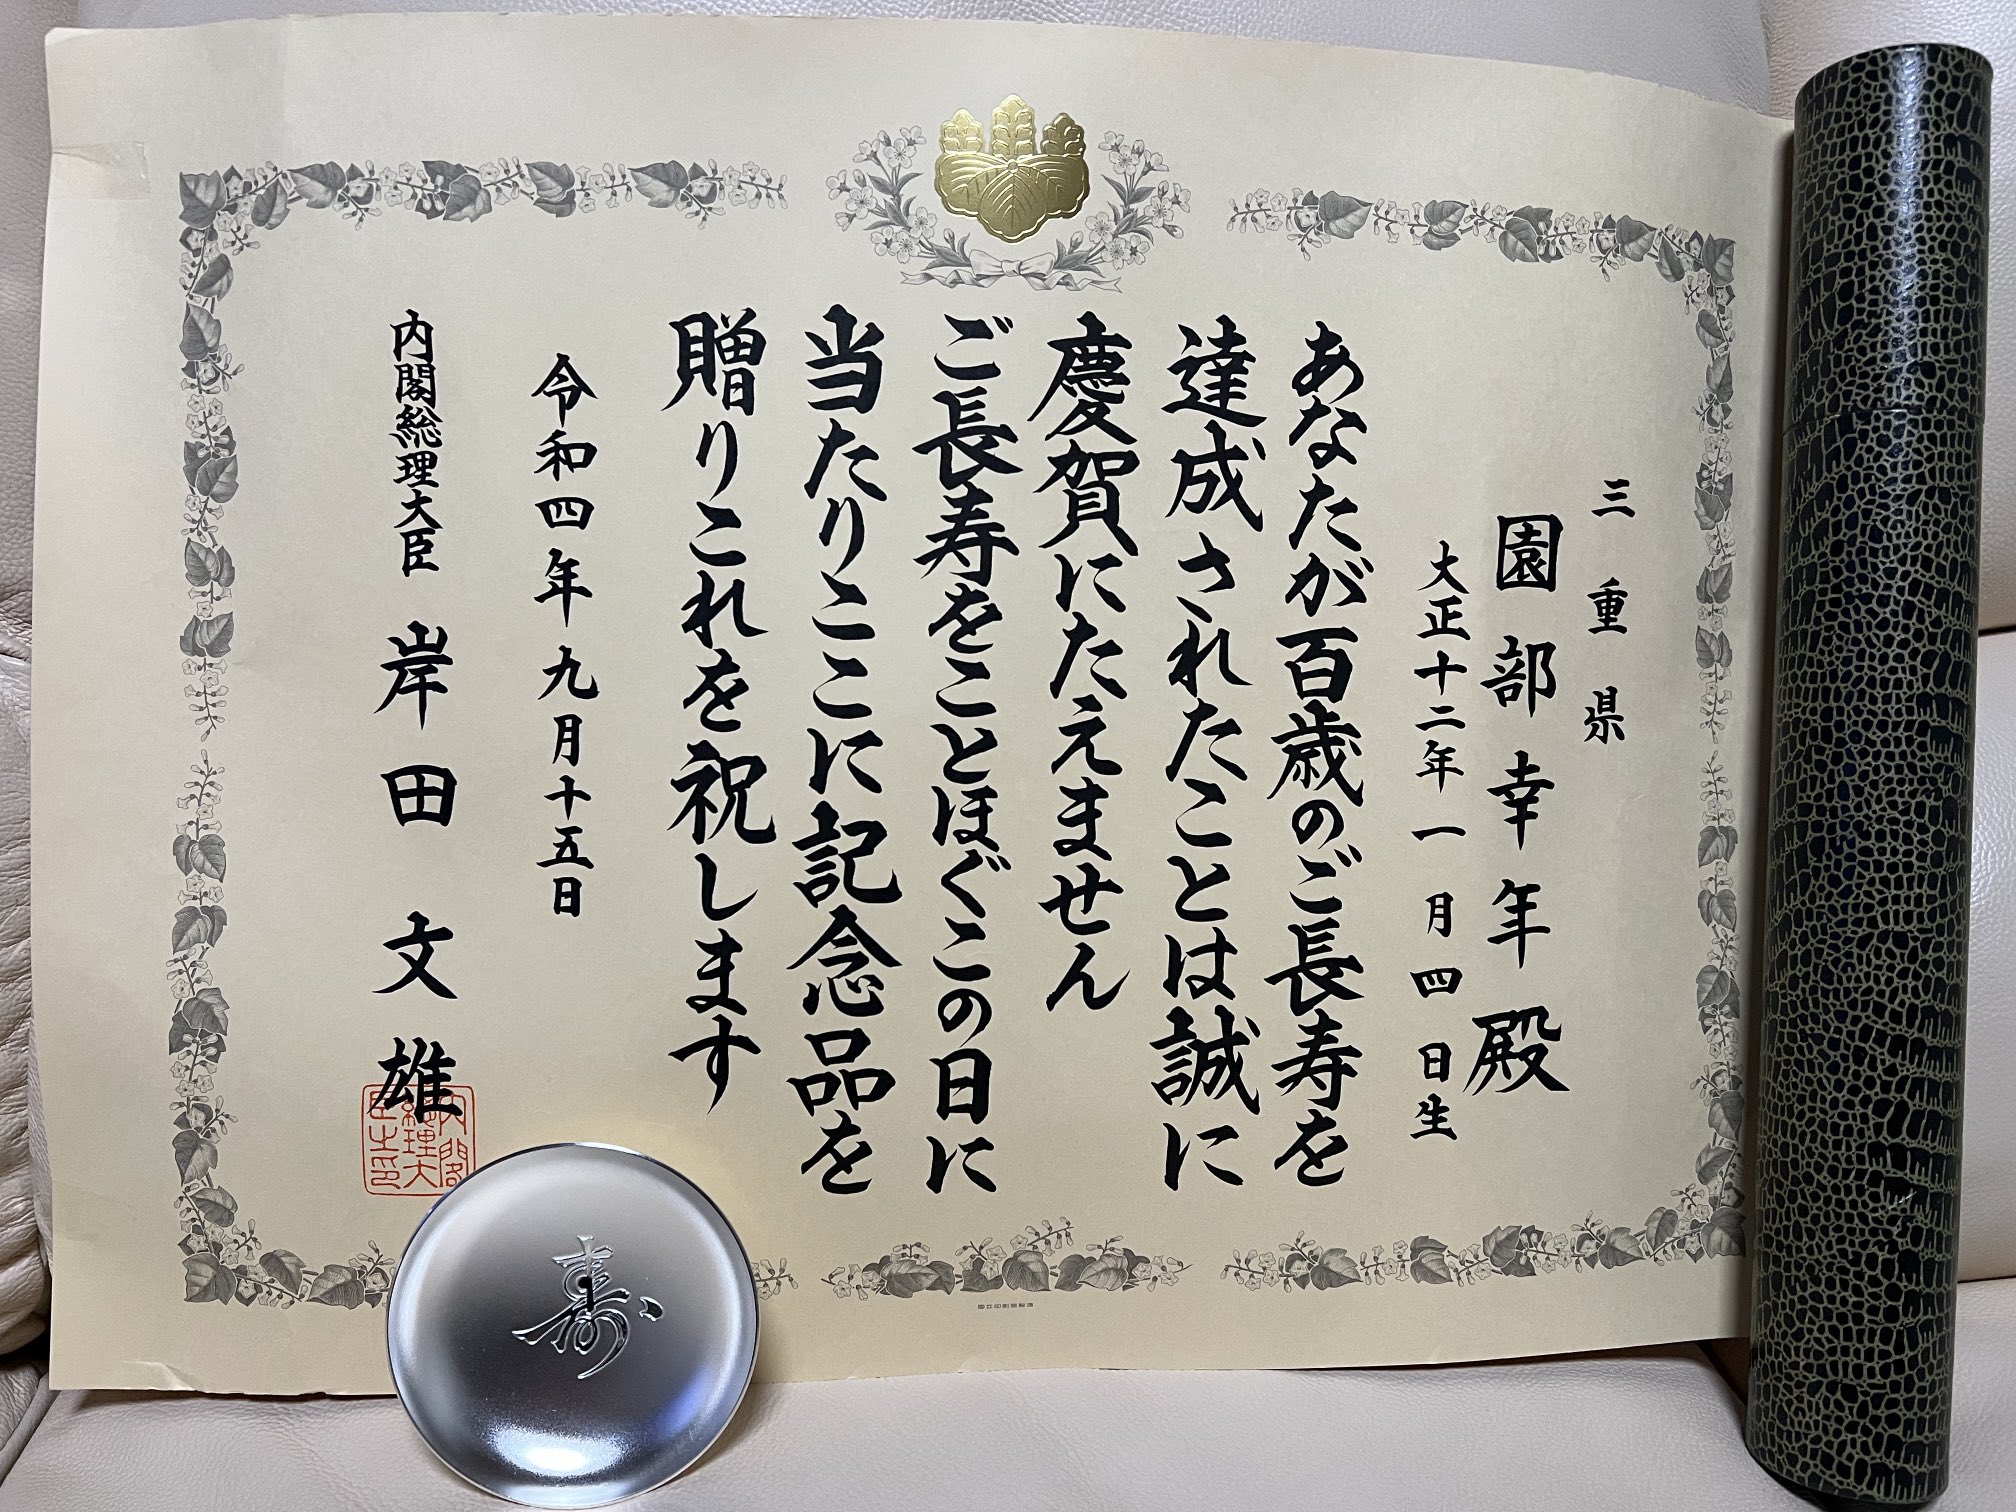 三重県
園部幸年殿
大正十二年一月四日生
あなたが百歳のご長寿を
達成されたことは誠に
慶賀にたえません
ご長寿をことほぐこの日に
当たりここに記念品を
贈りこれを祝します
令和四年九月十五日
内閣総理大臣 岸田文雄
内閣
総理大
臣之印
寿
国立印刷局製造